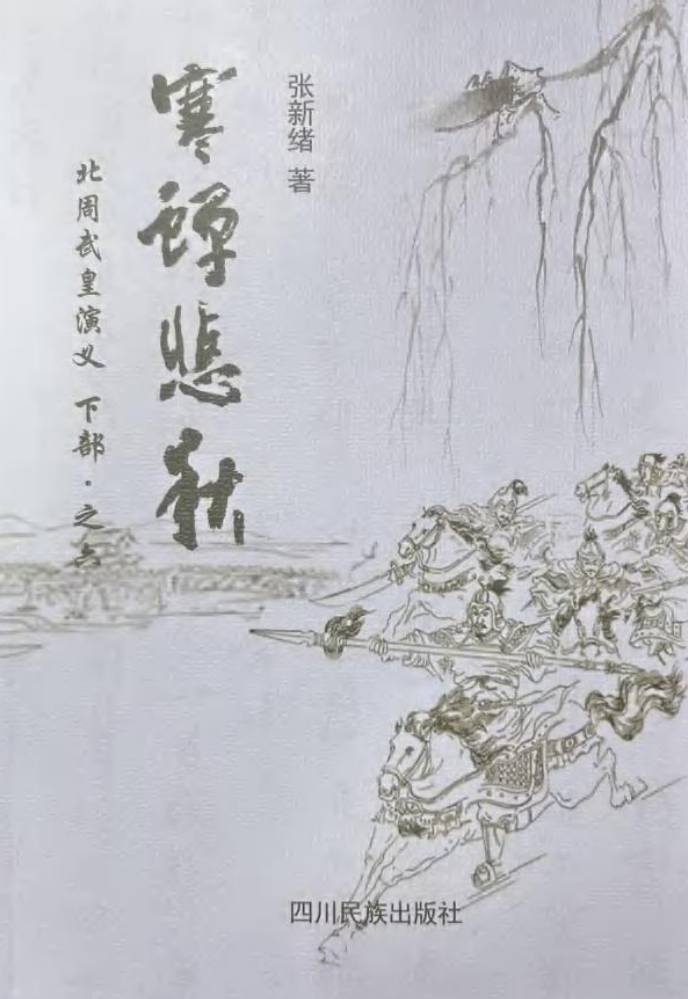 张新绪 著
寒蝉悲秋
北周武皇演义 下部·之六
四川民族出版社